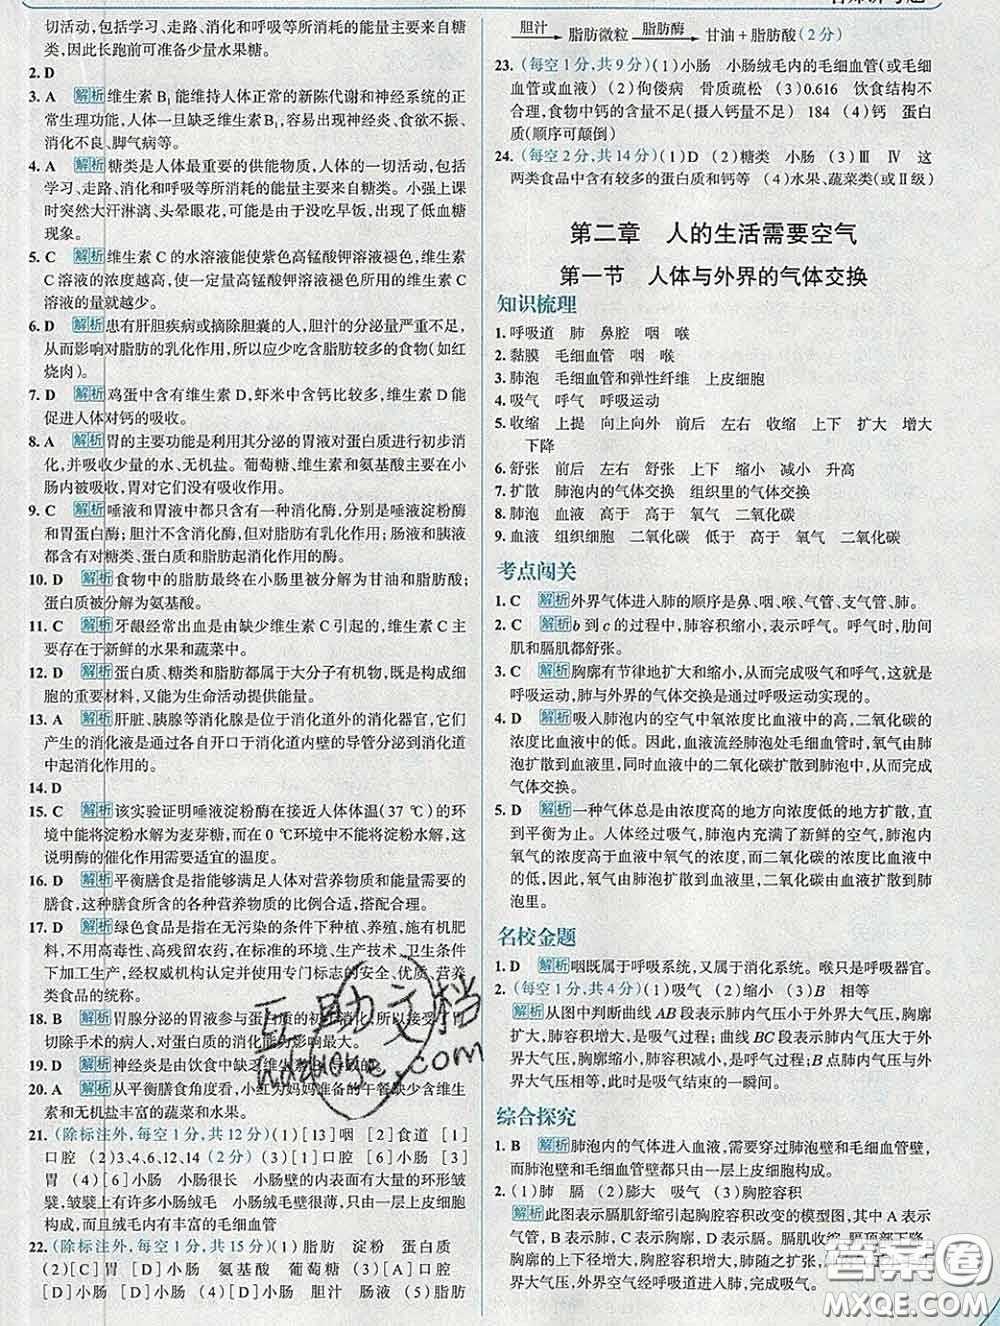 切活动,包括学习、走路、消化和呼吸等所消耗的能量主要来自糖
类,因此长跑前可准备少量水果糖。
2. D
3. A 解析 维生素 B₁ 能维持人体正常的新陈代谢和神经系统的正
常生理功能,人体一旦缺乏维生素 B₁,容易出现神经炎、食欲不振、
消化不良、脚气病等。
4. A 解析 糖类是人体最重要的供能物质,人体的一切活动,包括
学习、走路、消化和呼吸等所消耗的能量主要来自糖类。小强上课
时突然大汗淋漓、头晕眼花,可能是由于没吃早饭,出现了低血糖
现象。
5. C 解析 维生素 C 的水溶液能使紫色高锰酸钾溶液褪色,维生素
C 溶液的浓度越高,使一定量高锰酸钾溶液褪色所消耗的维生素 C
溶液的量就越少。
6. D 解析 患有肝胆疾病或摘除胆囊的人,胆汁的分泌量严重不足,
从而影响对脂肪的乳化作用,所以应少吃含脂肪较多的食物(如红
烧肉)。
7. D 解析 鸡蛋中含有维生素 D,虾米中含钙比较多,维生素 D 能
促进人体对钙的吸收。
8. A 解析 胃的主要功能是利用其分泌的胃液对蛋白质进行初步消
化,并吸收少量的水、无机盐。葡萄糖、维生素和氨基酸主要在小
肠内被吸收,胃对其没有吸收作用。
9. C 解析 唾液和胃液中都只含有一种消化酶,分别是唾液淀粉酶
和胃蛋白酶;胆汁不含消化酶,但对脂肪有乳化作用;肠液和胰液
都含有对糖类、蛋白质和脂肪起消化作用的酶。
10. D 解析 食物中的脂肪最终在小肠里被分解为甘油和脂肪酸;
蛋白质被分解为氨基酸。
11. C 解析 牙龈经常出血是由缺少维生素 C 引起的,维生素 C 主
要存在于新鲜的水果和蔬菜中。
12. D 解析 蛋白质、糖类和脂肪都属于大分子有机物,既是构成细
胞的重要材料,又能为生命活动提供能量。
13. A 解析 肝脏、胰腺等消化腺是位于消化道外的消化器官,它们
产生的消化液是通过各自开口于消化道内壁的导管分泌到消化道
中起消化作用的。
14. D
15. C 解析 该实验证明唾液淀粉酶在接近人体体温(37 ℃)的环
境中能将淀粉水解为麦芽糖,而在 0 ℃环境中不能将淀粉水解,这
说明酶的催化作用需要适宜的温度。
16. D 解析 平衡膳食是指能够满足人体对营养物质和能量需要的
膳食,这种膳食所含的各种营养物质的比例合适,搭配合理。
17. D 解析 绿色食品是指在无污染的条件下种植、养殖,施有机肥
料,不用高毒性、高残留农药,在标准的环境、生产技术、卫生条件
下加工生产,经权威机构认定并使用专门标志的安全、优质、营养
类食品的统称。
18. B 解析 胃腺分泌的胃液参与蛋白质的初步消化,所以接受了胃
切除手术的病人,对蛋白质的消化能力影响最大。
19. D 解析 神经炎是由饮食中缺乏维生素
20. A 解析 从平衡膳食角度看,小红为妈妈准备的午餐缺少含维生
素和无机盐丰富的蔬菜和水果。
21. (除标注外,每空 1 分,共 12 分)(1)[13]咽 [2]食道 [1]
口腔 (2)3、4、6、12、14(2 分) (3)[1]口腔 [6]小肠 [3]
胃 (4)小肠 小肠很长 小肠壁的内表面有大量的环形皱
襞,皱襞上有许多小肠绒毛 小肠绒毛壁很薄,只由一层上皮细胞
构成,而且绒毛内有丰富的毛细血管
22. (除标注外,每空 1 分,共 15 分)(1)脂肪 淀粉 蛋白质
(2)[C]胃 [D]小肠 氨基酸 葡萄糖 (3)[A]口腔
[D]小肠 (4)[D]小肠 胆汁 肠液 (5)脂肪
胆汁 脂肪微粒 脂肪酶 甘油+脂肪酸(2 分)
23. (每空 1 分,共 9 分)(1)小肠 小肠绒毛内的毛细血管(或毛细
血管或血液) (2)佝偻病 骨质疏松 (3)0.616 饮食结构不
合理,食物中钙的含量不足(摄入钙量不足) 184 (4)钙 蛋白
质(顺序可颠倒)
24. (每空 2 分,共 14 分)(1)D (2)糖类 小肠 (3)Ⅲ Ⅳ 这
两类食品中含有较多的蛋白质和钙等 (4)水果、蔬菜类(或Ⅱ级)
第二章 人的生活需要空气
第一节 人体与外界的气体交换
知识梳理
1. 呼吸道 肺 鼻腔 咽 喉
2. 黏膜 毛细血管 咽 喉
3. 肺泡 毛细血管和弹性纤维 上皮细胞
4. 吸气 呼气 呼吸运动
5. 收缩 上提 向上向外 前后 左右 收缩 上下 扩大 增大
下降
6. 舒张 前后 左右 舒张 上下 缩小 减小 升高
7. 扩散 肺泡内的气体交换 组织里的气体交换
8. 肺泡 血液 高于 高于 氧气 二氧化碳
9. 血液 组织细胞 二氧化碳 低于 高于 氧气 二氧化碳
考点闯关
1. C 解析 外界气体进入肺的顺序是鼻、咽、喉、气管、支气管、肺。
2. C 解析 b 到 c 的过程中,肺容积缩小,表示呼气。呼气时,肋间
肌和膈肌都舒张。
3. C 解析 胸廓有节律地扩大和缩小,从而完成吸气和呼气,这就是
呼吸运动,肺与外界的气体交换是通过呼吸运动实现的。
4. D 解析 吸入肺泡内的空气中氧浓度比血液中的高,二氧化碳的
浓度比血液中的低。因此,血液流经肺泡处毛细血管时,氧气由肺
泡扩散到血液里,同时血液中的二氧化碳扩散到肺泡中,从而完成
气体交换。
5. D 解析 一种气体总是由浓度高的地方向浓度低的地方扩散,直
到平衡为止。人体经过吸气,肺泡内充满了新鲜的空气,肺泡内
氧气的浓度高于血液中氧气的浓度,而二氧化碳的浓度比血液中
的低,因此,氧气由肺泡扩散到血液里,二氧化碳由血液扩散到肺
泡里。
名校金题
1. D 解析 咽既属于呼吸系统,又属于消化系统。喉只是呼吸器官。
2. (每空 1 分,共 4 分)(1)吸气 (2)缩小 (3)B 相等
解析 从图中判断曲线 AB 段表示肺内气压小于外界大气压,胸廓
扩大,肺容积变大,是吸气过程;曲线 BC 段表示肺内气压大于外
界大气压,胸廓缩小,肺容积减小,是呼气过程;B 点肺内气压与外
界大气压相等,此时是吸气结束的一瞬间。
综合探究
1. B 解析 肺泡内的气体进入血液,需要穿过肺泡壁和毛细血管壁,
而肺泡壁和毛细血管壁都只由一层上皮细胞构成。
2. (1)肺 膈 (2)膈 吸气 (3)胸腔容积
解析 此图表示膈肌收缩引起胸腔容积改变的模型图,其中 A 表示
气管,B 表示肺,C 表示胸廓,D 表示膈。膈肌收缩,膈顶部下降,
胸廓的上下径增大,胸腔容积增大,肺随之扩张,
压,外界空气经呼吸道进入肺,完成吸气。
互助文档
答案卷
MXQE.COM